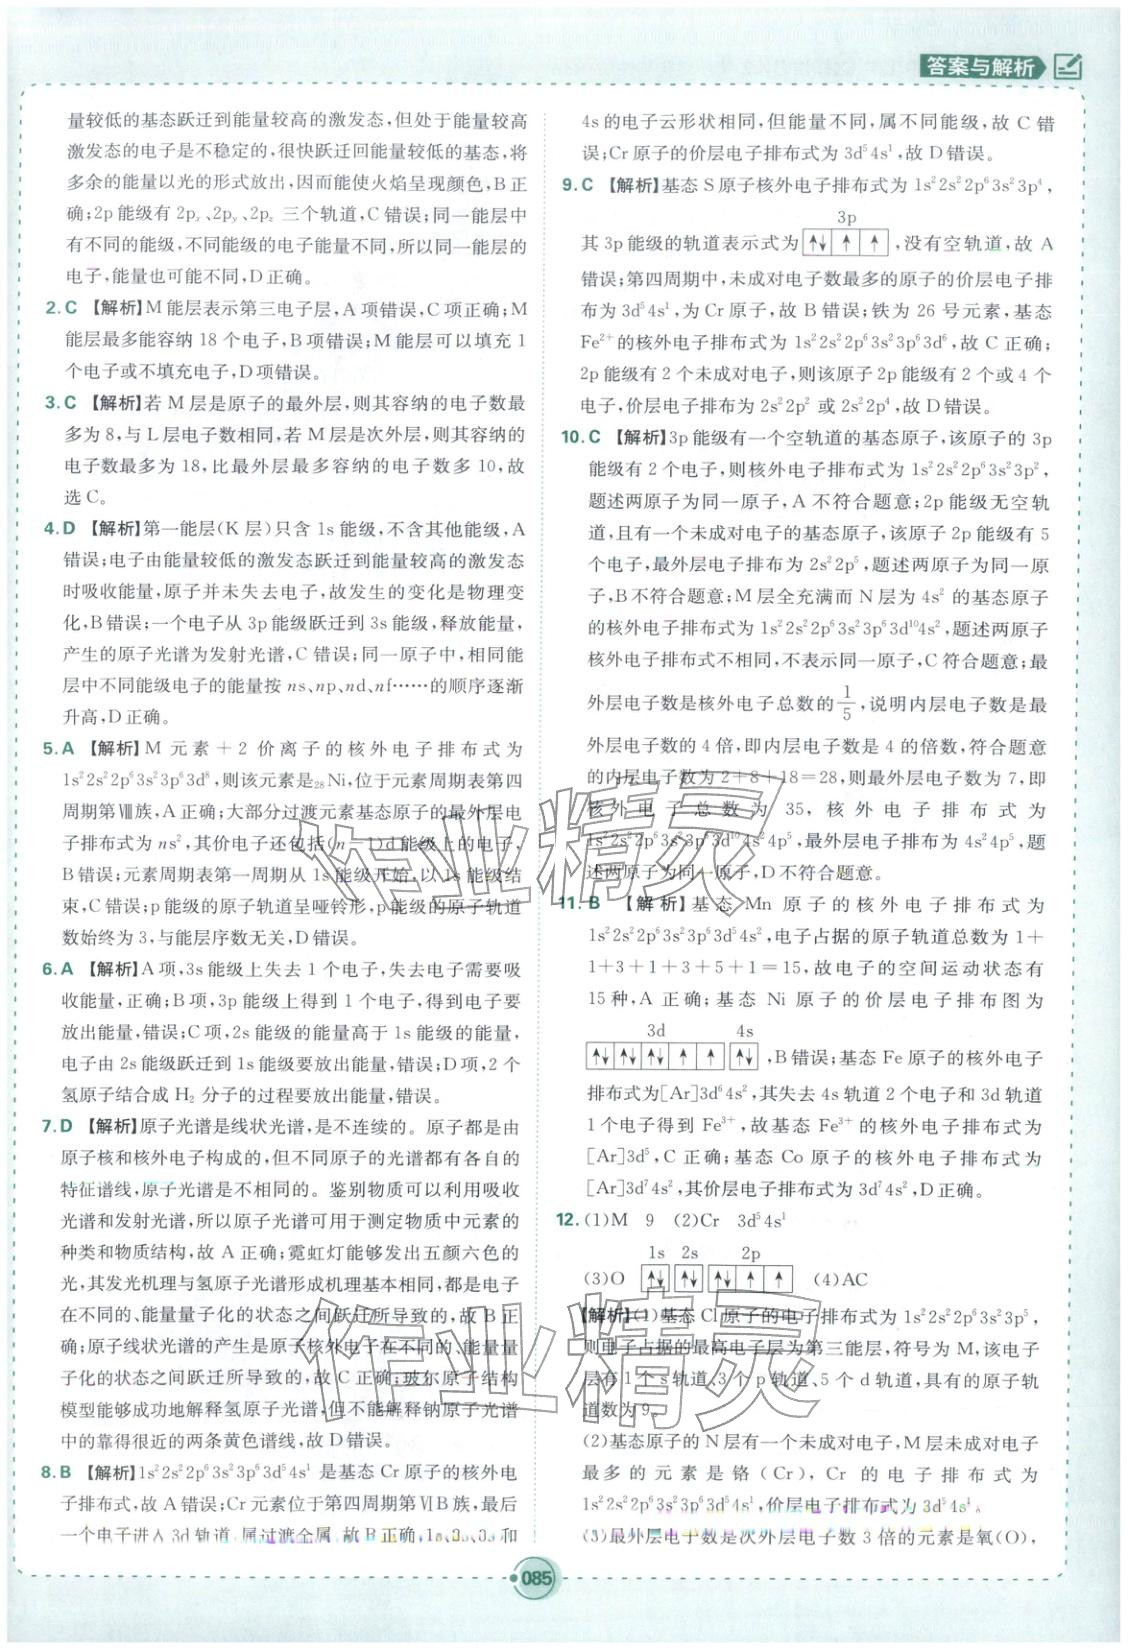 答案与解析
量较低的基态跃迁到能量较高的激发态,但处于能量较高
激发态的电子是不稳定的,很快跃迁回能量较低的基态,将
多余的能量以光的形式放出,因而能使火焰呈现颜色,B正
确;2p能级有2pₓ、2pᵧ、2p_z 三个轨道,C错误;同一能层中
有不同的能级,不同能级的电子能量不同,所以同一能层的
电子,能量也可能不同,D正确。
2.C 【解析】M能层表示第三电子层,A项错误,C项正确;M
能层最多能容纳18个电子,B项错误;M能层可以填充1
个电子或不填充电子,D项错误。
3.C 【解析】若M层是原子的最外层,则其容纳的电子数最
多为8,与L层电子数相同,若M层是次外层,则其容纳的
电子数最多为18,比最外层最多容纳的电子数多10,故
选C。
4.D 【解析】第一能层(K层)只含1s能级,不含其他能级,A
错误;电子由能量较低的激发态跃迁到能量较高的激发态
时吸收能量,原子并未失去电子,故发生的变化是物理变
化,B错误;一个电子从3p能级跃迁到3s能级,释放能量,
产生的原子光谱为发射光谱,C错误;同一原子中,相同能
层中不同能级电子的能量按ns、np、nd、nf……的顺序逐渐
升高,D正确。
5.A 【解析】M元素+2价离子的核外电子排布式为
1s²2s²2p⁶3s²3p⁶3d⁸,则该元素是₂₈Ni,位于元素周期表第四
周期第Ⅷ族,A正确;大部分过渡元素基态原子的最外层电
子排布式为ns²,其价电子还包括(n-1)d能级上的电子,
B错误;元素周期表第一周期从1s能级开始,以1s能级结
束,C错误;p能级的原子轨道呈哑铃形,p能级的原子轨道
数始终为3,与能层序数无关,D错误。
6.A 【解析】A项,3s能级上失去1个电子,失去电子需要吸
收能量,正确;B项,3p能级上得到1个电子,得到电子要
放出能量,错误;C项,2s能级的能量高于1s能级的能量,
电子由2s能级跃迁到1s能级要放出能量,错误;D项,2个
氢原子结合成H₂分子的过程要放出能量,错误。
7.D 【解析】原子光谱是线状光谱,是不连续的。原子都是由
原子核和核外电子构成的,但不同原子的光谱都有各自的
特征谱线,原子光谱是不相同的。鉴别物质可以利用吸收
光谱和发射光谱,所以原子光谱可用于测定物质中元素的
种类和物质结构,故A正确;霓虹灯能够发出五颜六色的
光,其发光机理与氢原子光谱形成机理基本相同,都是电子
在不同的、能量量子化的状态之间跃迁所导致的,故B正
确;原子线状光谱的产生是原子核外电子在不同的、能量量
子化的状态之间跃迁所导致的,故C正确;玻尔原子结构
模型能够成功地解释氢原子光谱,但不能解释钠原子光谱
中的靠得很近的两条黄色谱线,故D错误。
8.B 【解析】1s²2s²2p⁶3s²3p⁶3d⁵4s¹是基态Cr原子的核外电
子排布式,故A错误;Cr元素位于第四周期第ⅥB族,最后
一个电子进入3d轨道,属过渡金属,故B正确;1s、2s、3s和
4s的电子云形状相同,但能量不同,属不同能级,故C错
误;Cr原子的价层电子排布式为3d⁵4s¹,故D错误。
9.C 【解析】基态S原子核外电子排布式为1s²2s²2p⁶3s²3p⁴,
3p
其3p能级的轨道表示式为 ↑↓ ↑ ↑ ,没有空轨道,故A
错误;第四周期中,未成对电子数最多的原子的价层电子排
布为3d⁵4s¹,为Cr原子,故B错误;铁为26号元素,基态
Fe²⁺的核外电子排布式为1s²2s²2p⁶3s²3p⁶3d⁶,故C正确;
2p能级有2个未成对电子,则该原子2p能级有2个或4个
电子,价层电子排布为2s²2p²或2s²2p⁴,故D错误。
10.C 【解析】3p能级有一个空轨道的基态原子,该原子的3p
能级有2个电子,则核外电子排布式为1s²2s²2p⁶3s²3p²,
题述两原子为同一原子,A不符合题意;2p能级无空轨
道,且有一个未成对电子的基态原子,该原子2p能级有5
个电子,最外层电子排布为2s²2p⁵,题述两原子为同一原
子,B不符合题意;M层全充满而N层为4s²的基态原子
的核外电子排布式为1s²2s²2p⁶3s²3p⁶3d¹⁰4s²,题述两原子
核外电子排布式不相同,不表示同一原子,C符合题意;最
外层电子数是核外电子总数的1/5,说明内层电子数是最
外层电子数的4倍,即内层电子数是4的倍数,符合题意
的内层电子数为2+8+18=28,则最外层电子数为7,即
核外电子总数为35,核外电子排布式为
1s²2s²2p⁶3s²3p⁶3d¹⁰4s²4p⁵,最外层电子排布为4s²4p⁵,题
述两原子为同一原子,D不符合题意。
11.B 【解析】基态Mn原子的核外电子排布式为
1s²2s²2p⁶3s²3p⁶3d⁵4s²,电子占据的原子轨道总数为1+
1+3+1+3+5+1=15,故电子的空间运动状态有
15种,A正确;基态Ni原子的价层电子排布图为
3d 4s
↑↓ ↑↓ ↑↓ ↑ ↑ ↑↓ ,B错误;基态Fe原子的核外电子
排布式为[Ar]3d⁶4s²,其失去4s轨道2个电子和3d轨道
1个电子得到Fe³⁺,故基态Fe³⁺的核外电子排布式为
[Ar]3d⁵,C正确;基态Co原子的核外电子排布式为
[Ar]3d⁷4s²,其价层电子排布式为3d⁷4s²,D正确。
12.(1)M 9 (2)Cr 3d⁵4s¹
1s 2s 2p
(3)O ↑↓ ↑↓ ↑↓ ↑ ↑ (4)AC
【解析】(1)基态Cl原子的电子排布式为1s²2s²2p⁶3s²3p⁵,
则电子占据的最高电子层为第三能层,符号为M,该电子
层有1个s轨道、3个p轨道、5个d轨道,具有的原子轨
道数为9。
(2)基态原子的N层有一个未成对电子,M层未成对电子
最多的元素是铬(Cr),Cr的电子排布式为
1s²2s²2p⁶3s²3p⁶3d⁵4s¹,价层电子排布式为3d⁵4s¹。
(3)最外层电子数是次外层电子数3倍的元素是氧(O),
085
作业精灵
作业精灵